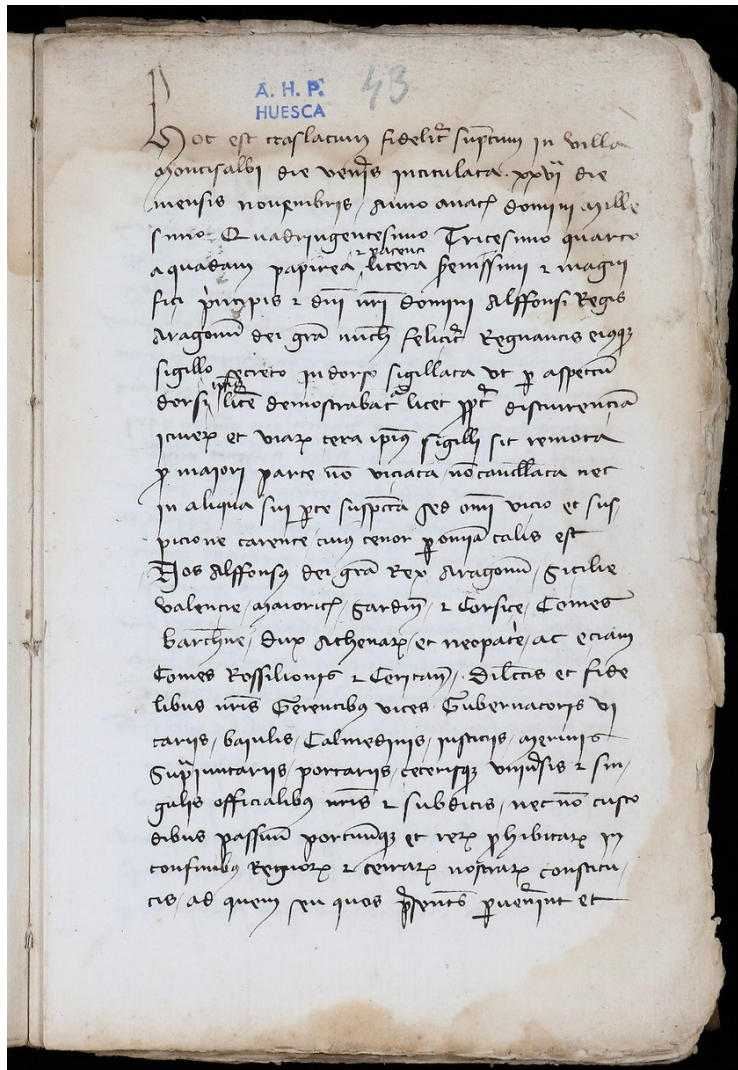 A. H. P.
HUESCA
43
Hoc est traslatum fidelit' sup̄tum in villa
montisalbi die ven̄is intitulata xxvi die
mensis novembris Anno a nat' domini Mille
simo Quadringentesimo Tricesimo quarto
a quadam papirea & patenti litera ser̄enissimi & magni
fici p'ncipis & dn̄i nr̄i domini Alffonsi Regis
Aragonū dei gr̄a nunc felicit' Regnantis eiusq;
sigillo secreto in dorso sigillata ut p aspectū
dorsi ip̄ius lr̄e demostrabat' licet ppt'
itiner' et viar' cera ipius sigilli sit remota
p maiori parte nō viciata nō cancell̄ata nec
in aliqua sui pte suspc̄ta sed om̄i vicio et sus
picione carente cuius tenor p om̄ia talis est
Nos Alffonsus dei gr̄a Rex Aragonū Sicilie
Valencie Maioric' Sardin̄ & Corsice Comes
barchn̄e dux Athenar' et neopat'e ac eciam
Comes Rossilionis & Ceritan̄ Dilc̄tis et fide
libus nr̄is Gerentibus vices Gubernatoris vi
cariis baiulis Calmedinis justiciis merinis
Sup̄iunctariis portariis ceterisq; univ'sis & sin
gulis officialibus nr̄is & subditis nec nō custo
dibus passuū portuūq; et rer' phibitar' in
confinibus Regnor' & terrar' nostrar' constitu
tis ad quem seu quos p̄sentes pven̄int et